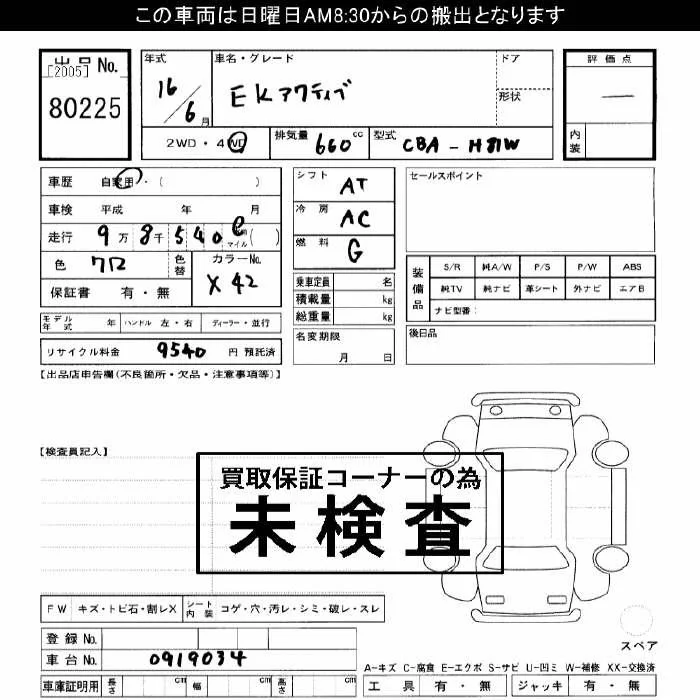 この車両は日曜日AM8:30からの搬出となります
出品 No. [2005] 80225
年式 16/6月
車名・グレード EKアクティブ
ドア
形状
評価点 —
内装
2WD・4WD 排気量 660cc 型式 CBA-H81W
車歴 自家用・( )
車検 平成 年 月
走行 9万8千540 マイル( )
色 クロ 色替 カラーNo. X42
保証書 有・無
シフト AT
冷房 AC
燃料 G
乗車定員 名
積載量 kg
総重量 kg
セールスポイント
装備品 S/R 純A/W P/S P/W ABS
純TV 純ナビ 革シート 外ナビ エアB
ナビ型番:
モデル年式 年 ハンドル 左・右 ディーラー・並行
名変期限 月 日
後日品
リサイクル料金 9540 円 預託済
【出品店申告欄(不良箇所・欠品・注意事項等)】
【検査員記入】
買取保証コーナーの為
未検査
FW キズ・トビ石・割レX シート内装 コゲ・穴・汚レ・シミ・破レ・スレ
登録 No.
車台 No. 0919034
スペア
A-キズ C-腐食 E-エクボ S-サビ U-凹ミ W-補修 XX-交換済
車庫証明用 長さ cm 幅 cm 高さ cm
工具 有・無 ジャッキ 有・無